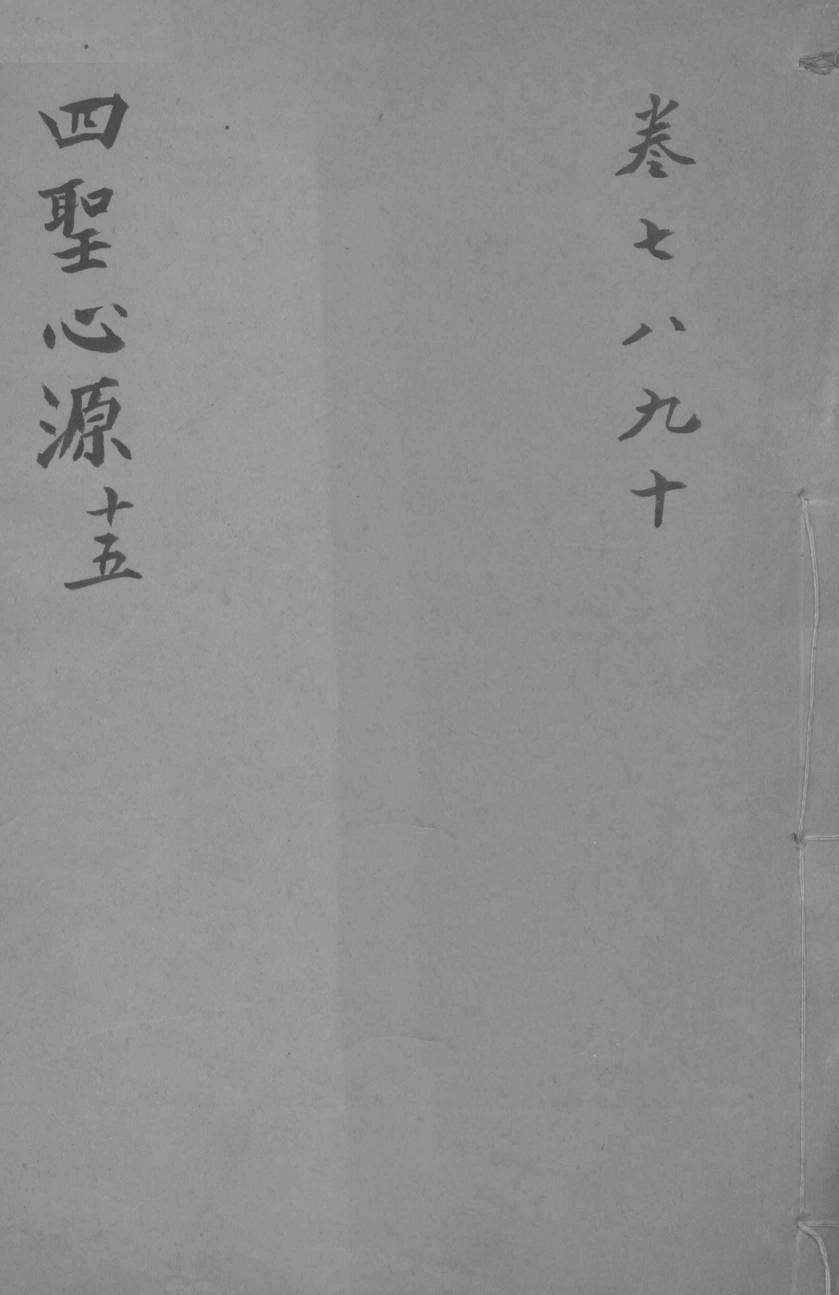 卷七八九十
四聖心源十五